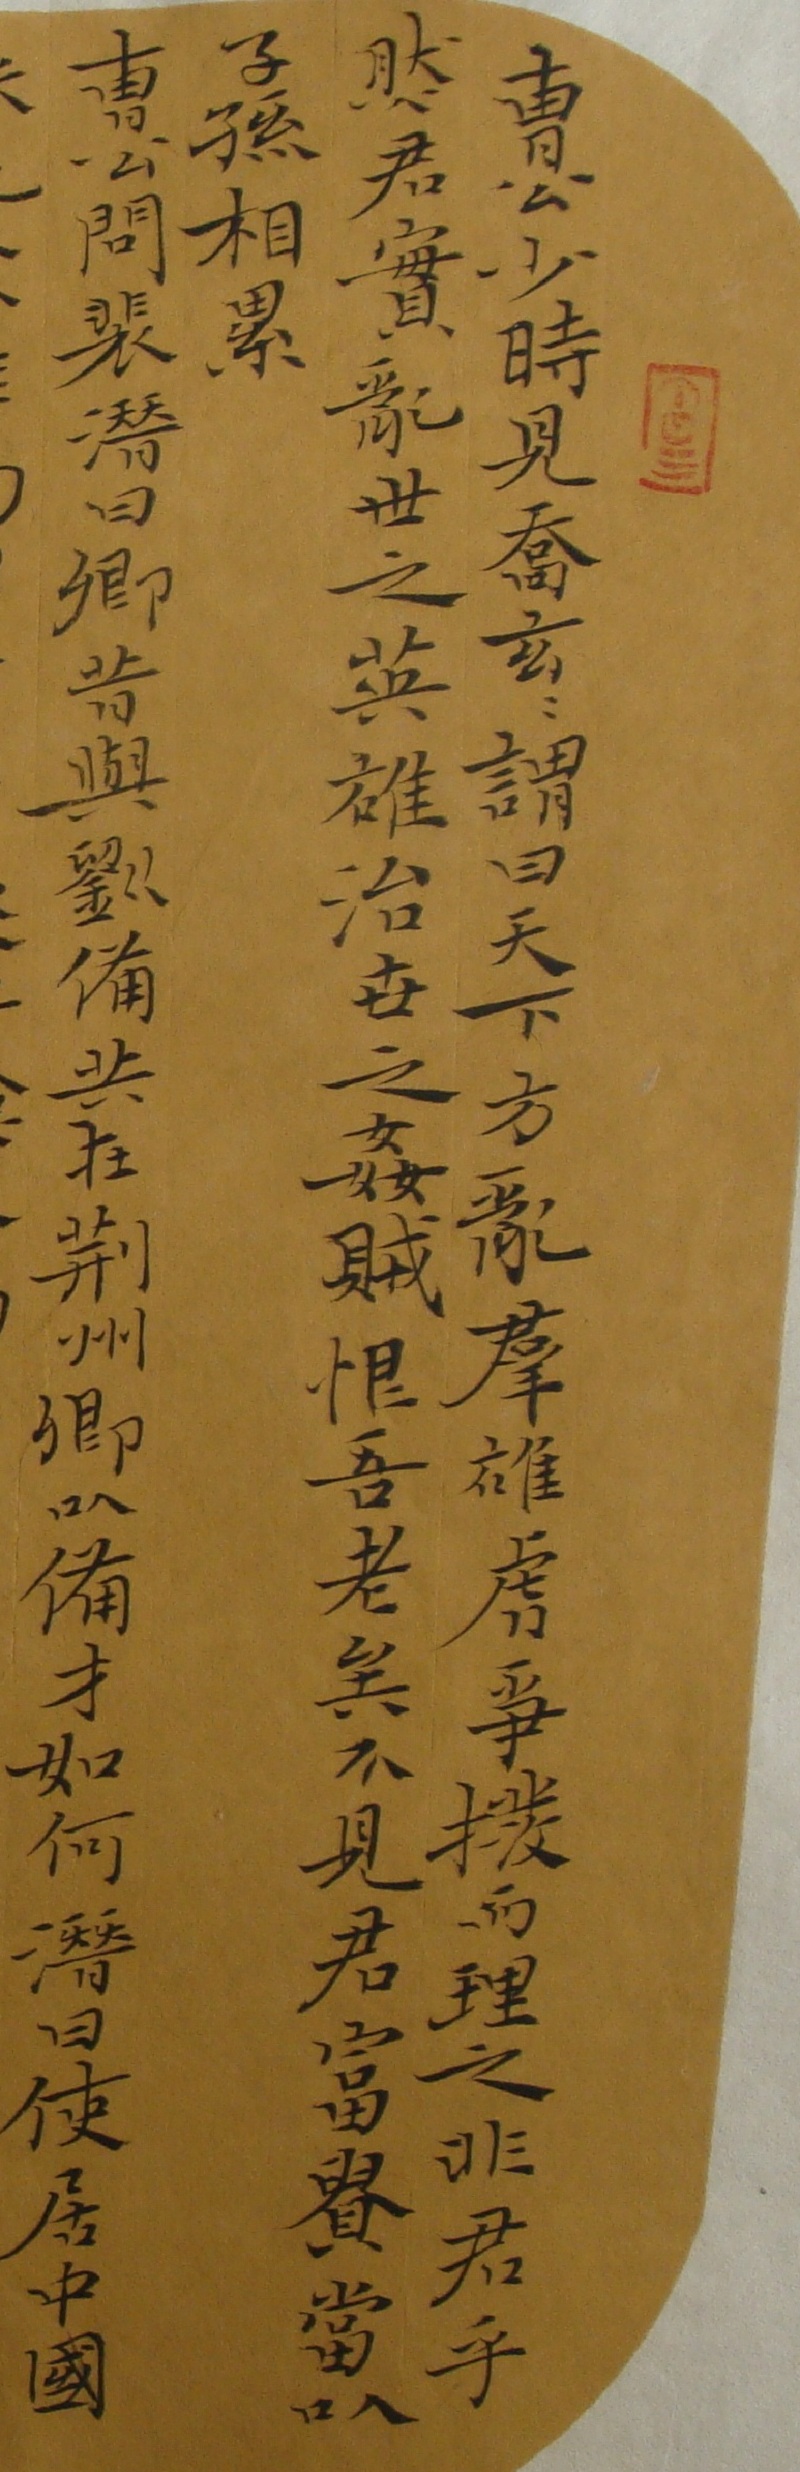 曹公少時見喬玄〻謂曰天下方亂羣雄虎爭撥而理之非君乎
然君實亂世之英雄治世之姦賊恨吾老矣不見君富貴當以
子孫相累
曹公問裴潛曰卿昔與劉備共在荊州卿以備才如何潛曰使居中國